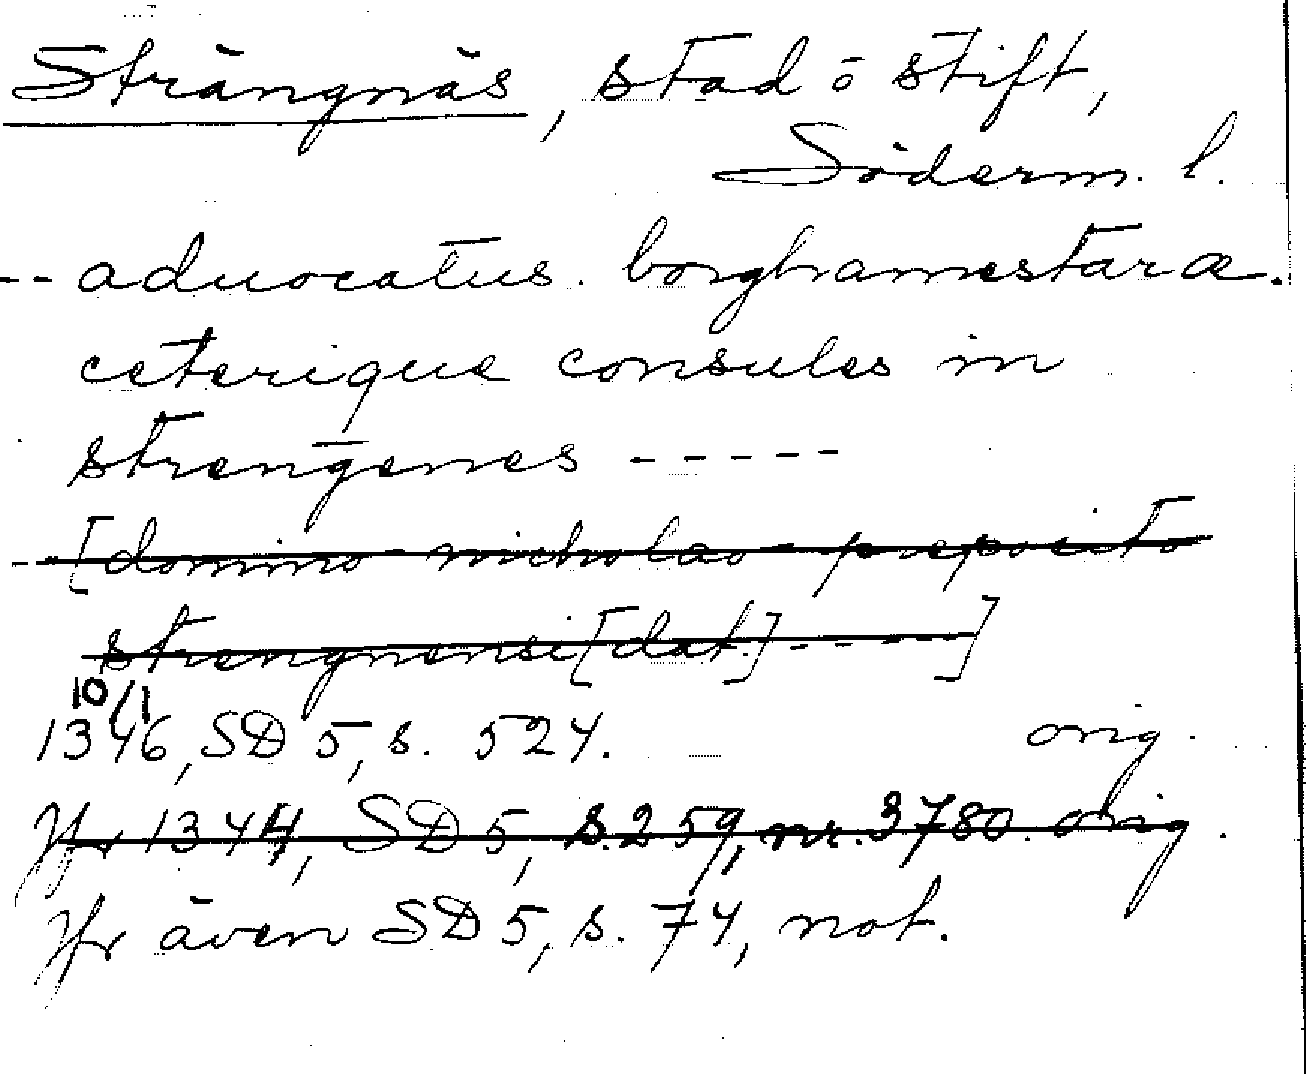 Strängnäs, stad o stift,
Söderm. l.
-- aduocatus. borghamestaræ.
ceterique consules in
strengenes -----
-- [domino nicholao preposito
strengnensi [dat.] -----]
10/1
1346, SD 5, s. 524. orig.
Jfr 1344, SD 5, s. 259, nr. 3780. orig.
Jfr även SD 5, s. 74, not.